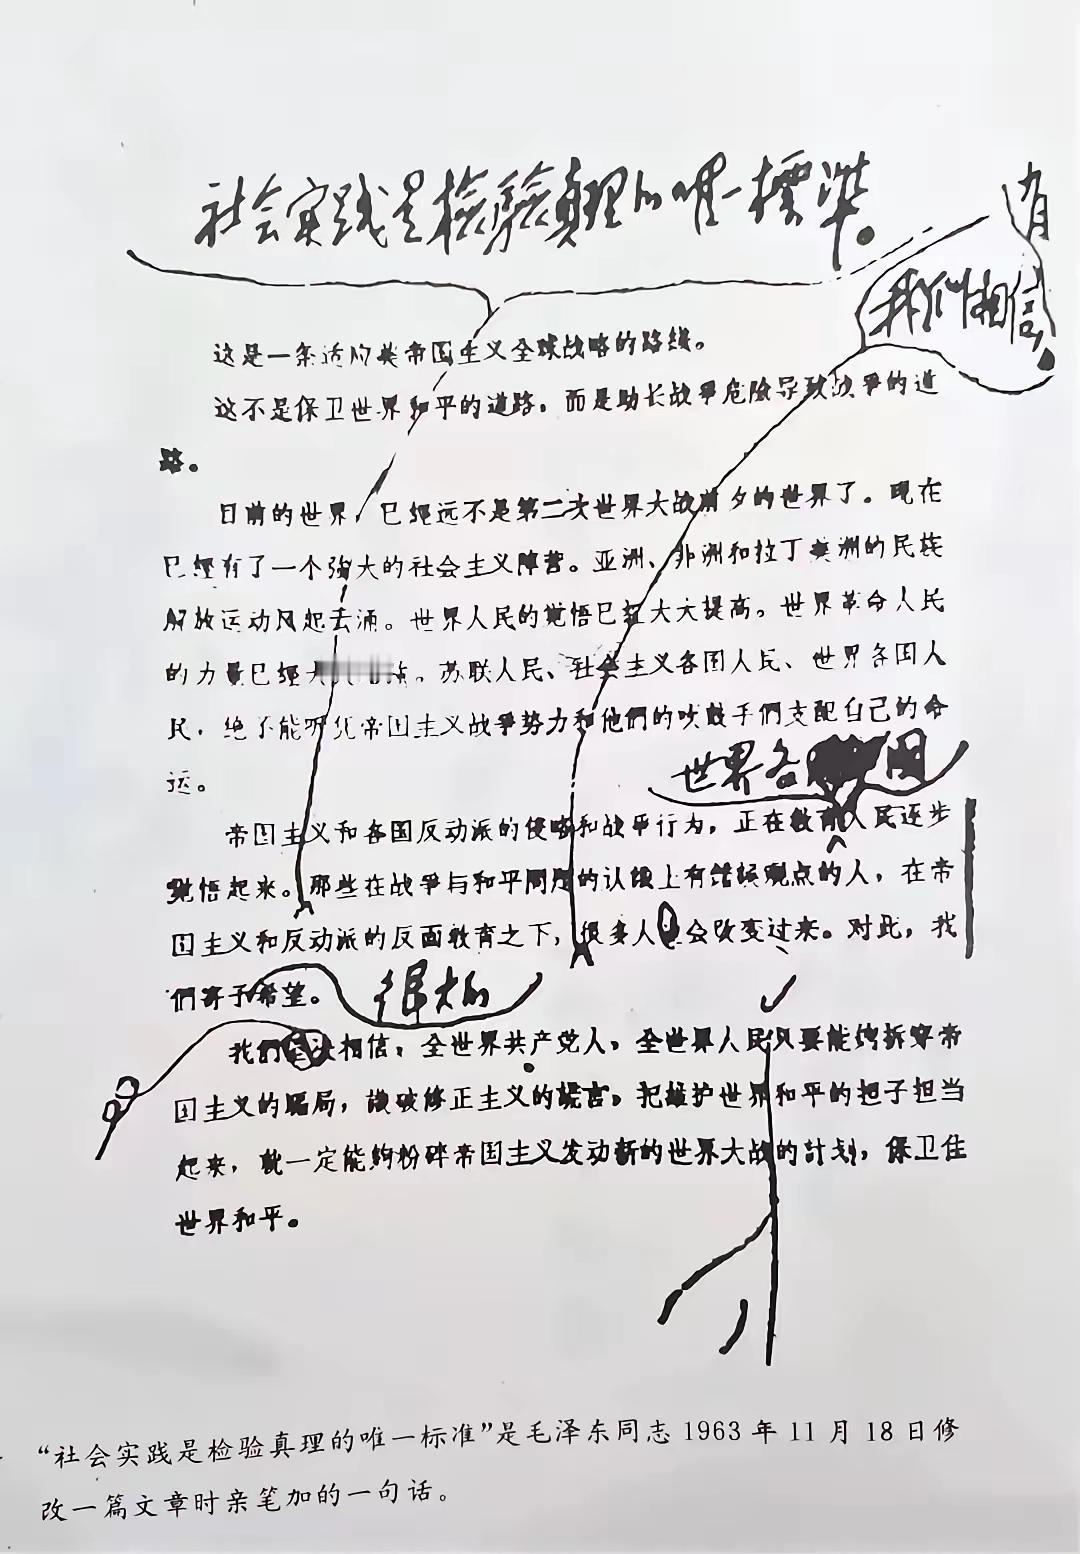 社会实践是檢驗真理的唯一標準。
有
我们相信,
这是一条适应美帝国主义全球战略的路线。
这不是保卫世界和平的道路,而是助长战争危险导致战争的道
路。
目前的世界,已經远不是第二次世界大战前夕的世界了。現在
已經有了一个強大的社会主义陣营。亚洲、非洲和拉丁美洲的民族
解放运动风起云涌。世界人民的覚悟已經大大提高。世界革命人民
的力量已經大。苏联人民、社会主义各国人民、世界各国人
民,绝不能听凭帝国主义战爭势力和他們的吹鼓手們支配自己的命
运。
世界各国
帝国主义和各国反动派的侵略和战爭行为,正在教育人民逐步
覚悟起来。那些在战爭与和平問題的认識上有錯誤观点的人,在帝
国主义和反动派的反面教育之下,很多人会改变过来。对此,我
們寄予希望。
很大的
我們坚决相信,全世界共产党人,全世界人民只要能夠拆穿帝
国主义的騙局,識破修正主义的謊言,把維护世界和平的担子担当
起来,就一定能夠粉碎帝国主义发动新的世界大战的計划,保卫住
世界和平。
“社会实践是检验真理的唯一标准”是毛泽东同志1963年11月18日修
改一篇文章时亲笔加的一句话。